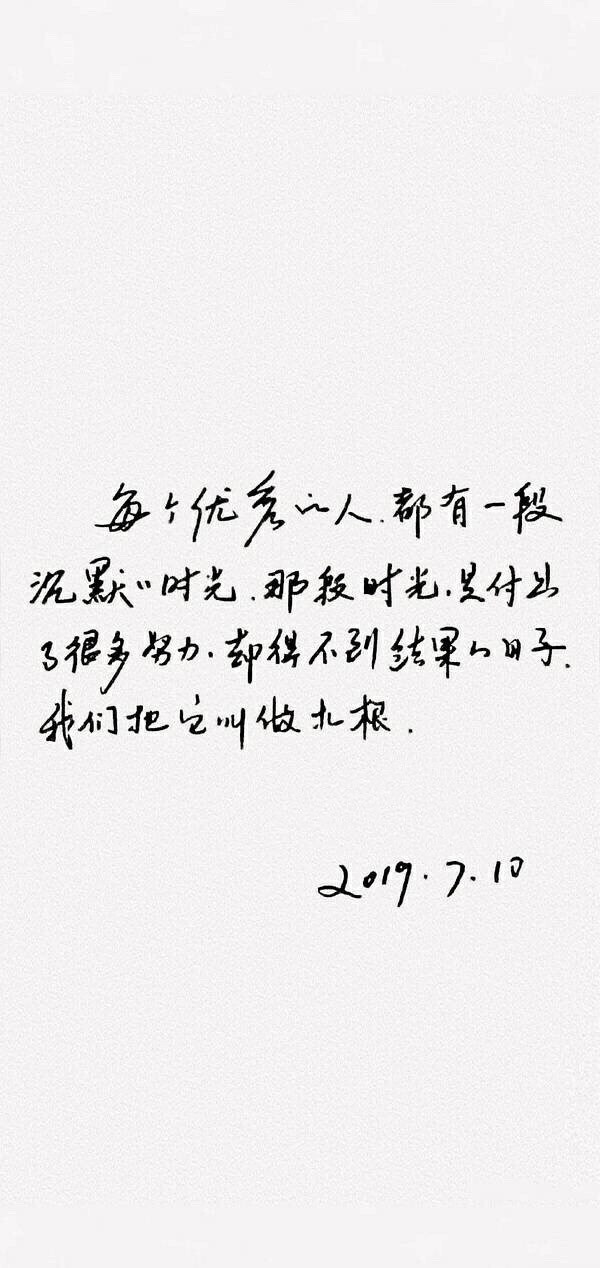 每个优秀的人.都有一段
沉默的时光.那段时光.是付出
了很多努力.却得不到结果的日子.
我们把它叫做扎根.
2019.7.10